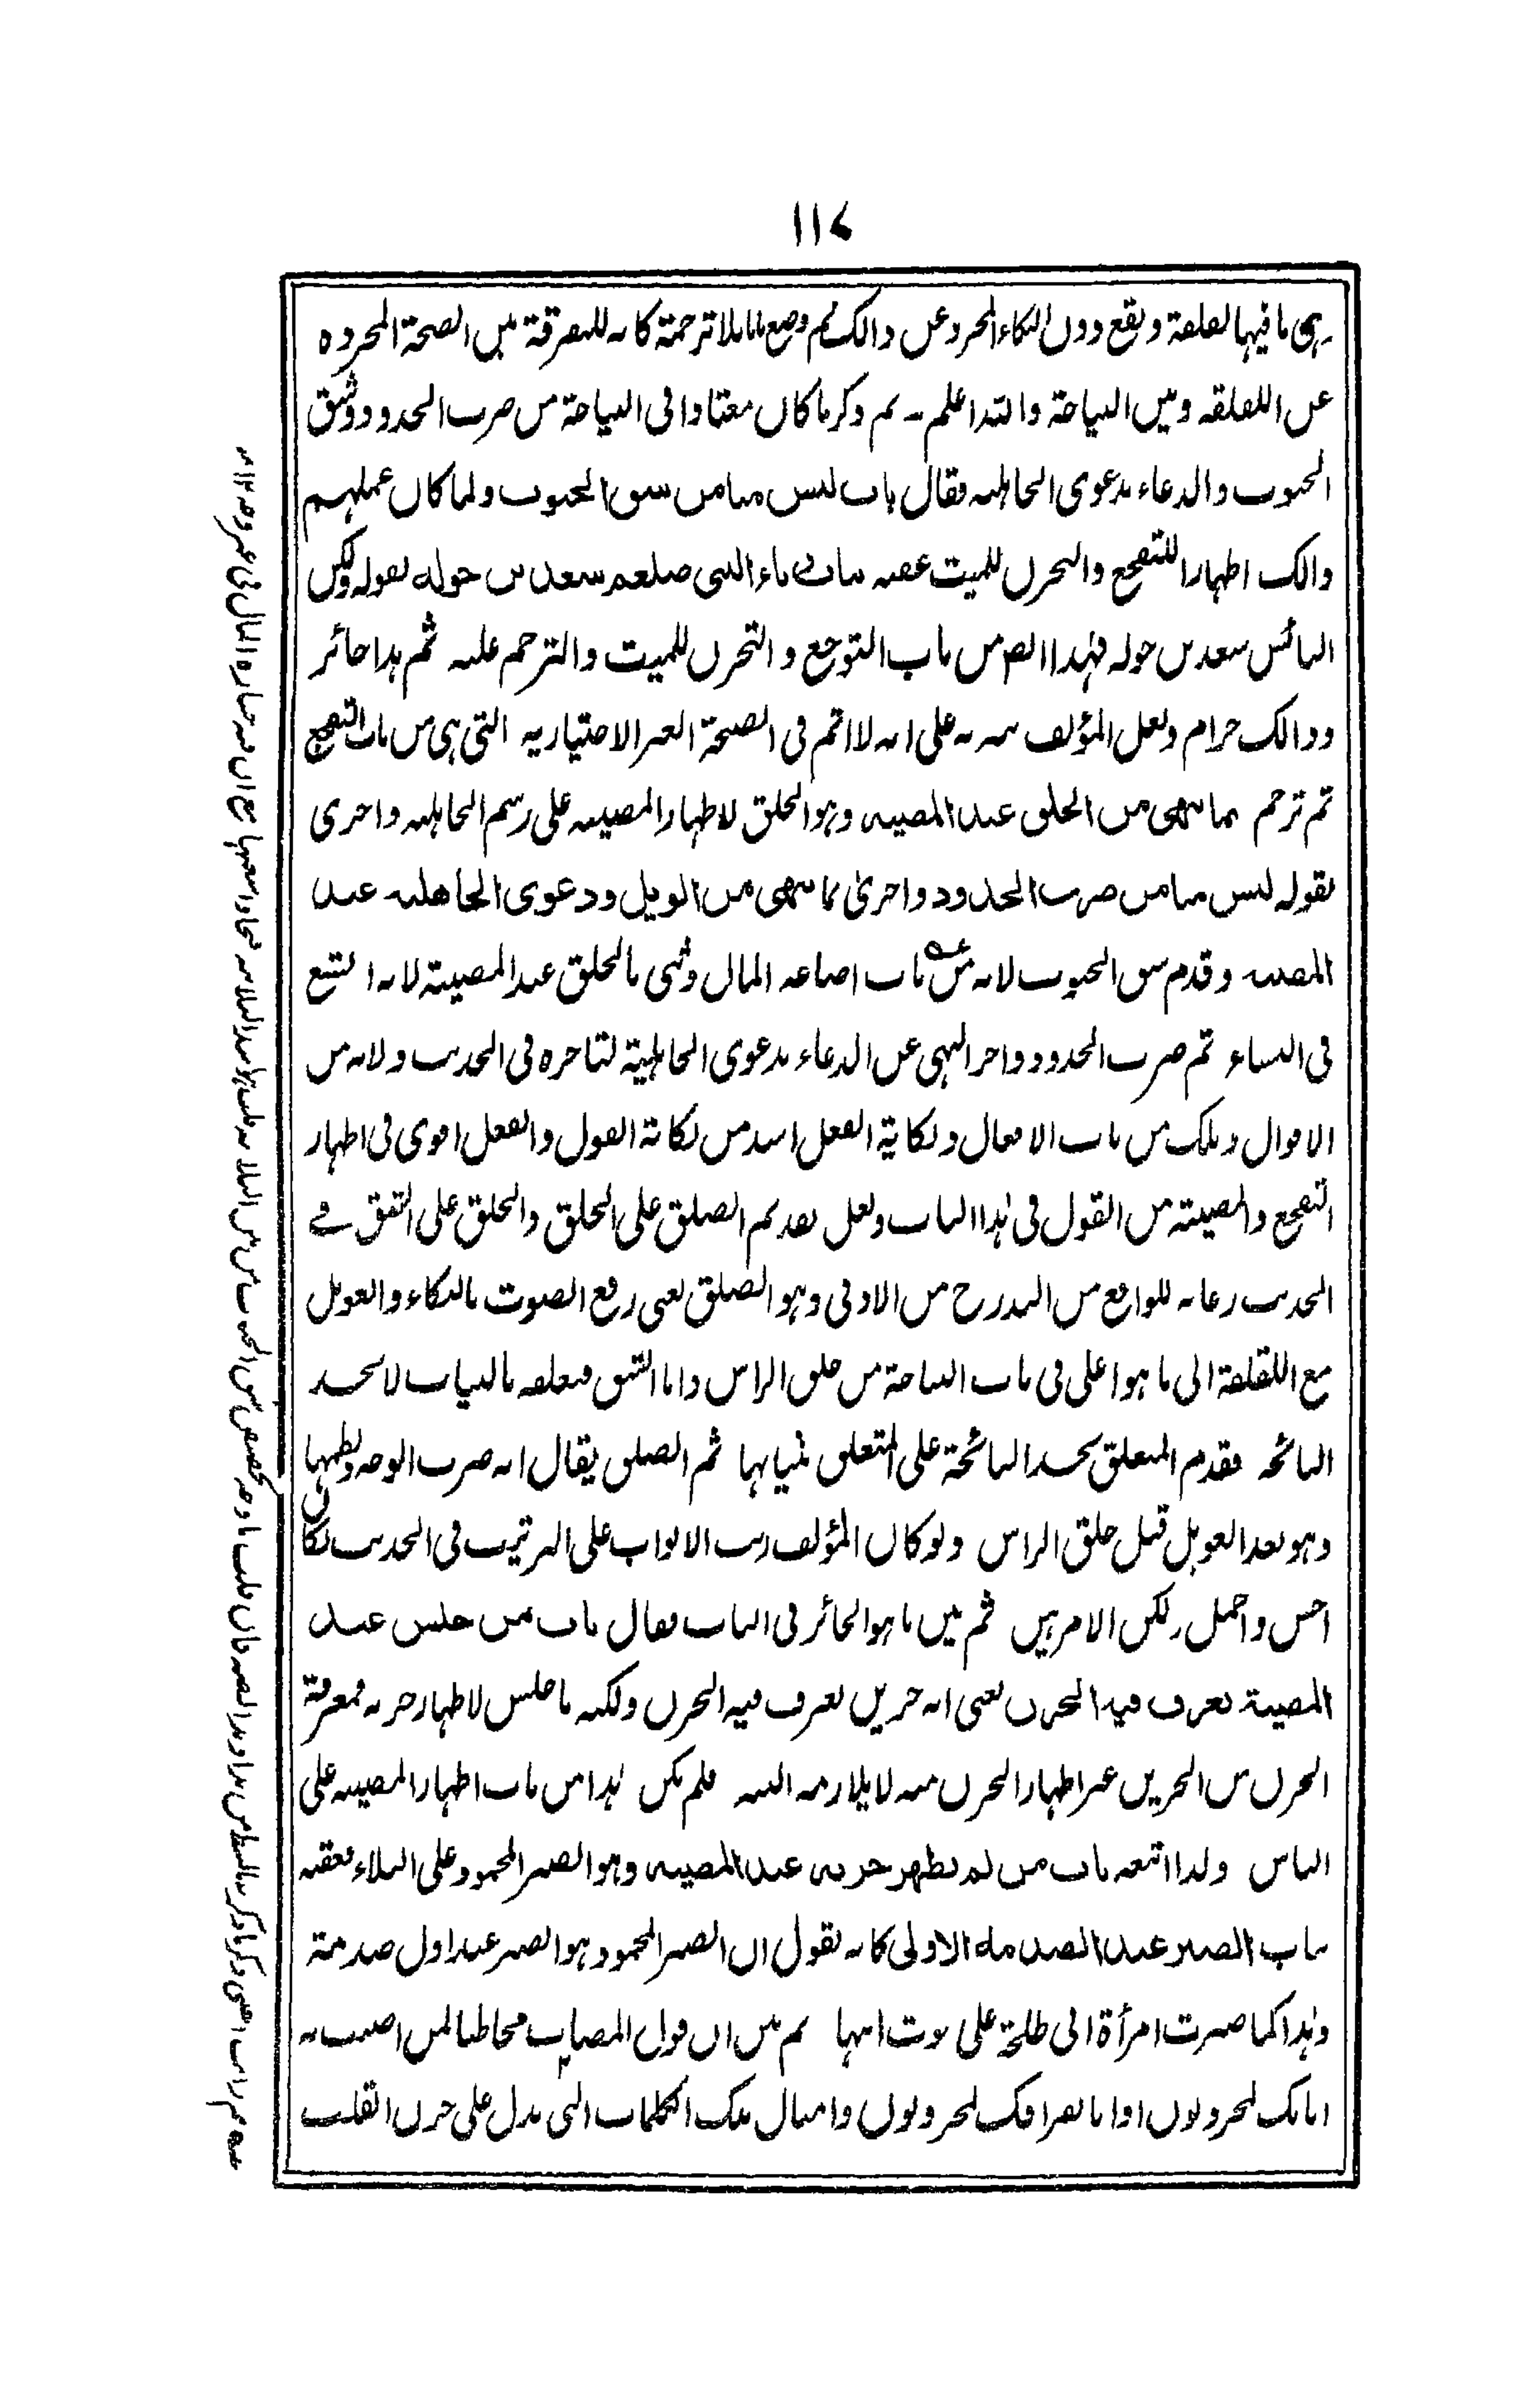 ١١٧
ہی ما فیہا لقلقة ونقع دون البکاء المجرد عن ذالک ثم وضع بابا بلا ترجمة کانہ للتفرقة بین الصیحة المجردہ
عن اللقلقه وبین النیاحة والله اعلم ۔ ثم ذکر ما کان معتادا فی النیاحة من ضرب الخدود وشق
الجیوب والدعاء بدعوی الجاهلیه فقال باب لیس منا من شق الجیوب ولما کان عملہم
ذالک اظہارا للتفجع والتحزن للمیت عقبه باب رثاء النبی صلعم سعد بن خوله بقوله ولکن
البائس سعد بن خوله فہذا ایضا من باب التوجع والتحزن للمیت والترحم علیه ثم ہذا جائز
وذالک حرام ولعل المؤلف نبہ به علی انه لا اثم فی الصیحة الغیر الاختیاریه التی ہی من باب التفجع
ثم ترجم بما ینهی من الحلق عند المصیبه وہو الحلق لاظہار المصیبه علی رسم الجاہلیه واخری
بقوله لیس منا من ضرب الخدود واخریٰ بما ینهی من الویل ودعوی الجاهلیه عند
المصیبه وقدم شق الجیوب لانه من باب اضاعه المال وثنی بالحلق عند المصیبة لانه اشنع
فی النساء ثم ضرب الخدود واخر النہی عن الدعاء بدعوی الجاہلیة لتاخرہ فی الحدیث ولانه من
الاقوال وتلک من باب الافعال ونکایة الفعل اشد من نکایة القول والفعل اقوی فی اظہار
التفجع والمصیبة من القول فی ہذا الباب ولعل تقدیم الصلق علی الحلق والحلق علی الشق فی
الحدیث رعایه للواقع من التدرج من الادنی وہو الصلق یعنی رفع الصوت بالبکاء والعویل
مع اللقلقة الی ما ہو اعلی فی باب النیاحة من حلق الراس واما الشق فتعلقه بالثیاب لا بجسد
النائحه فقدم المتعلق بجسد النائحة علی المتعلق بثیابہا ثم الصلق یقال انه ضرب الوجه ولطمہا
وہو بعد العویل قبل حلق الراس ولو کان المؤلف رتب الابواب علی الترتیب فی الحدیث لکان
احسن واجمل لکن الامر بین ثم بین ما ہو الجائز فی الباب فقال باب من جلس عند
المصیبة یعرف فیه الحزن یعنی انه حزین یعرف فیه الحزن ولکنه ما جلس لاظہار حزنه فمعرفة
الحزن من الحزین غیر اظہار الحزن منه لا یلازمه البته فلم یکن ہذا من باب اظہار المصیبه علی
الناس ولذا اتبعه باب من لم یظهر حزنه عند المصیبه وہو الصبر المحمود علی البلاء فعقبه
باب الصبر عند الصدمة الاولی کانه یقول ان الصبر المحمود ہو الصبر عند اول صدمة
وہذا کما صبرت امرأة ابی طلحة علی موت ابنہا ثم بین ان قول المصاب مخاطبا لمن اصیب به
انا بک لمحزونون او انا بفراقک لمحزونون وامثال تلک الکلمات التی تدل علی حزن القلب